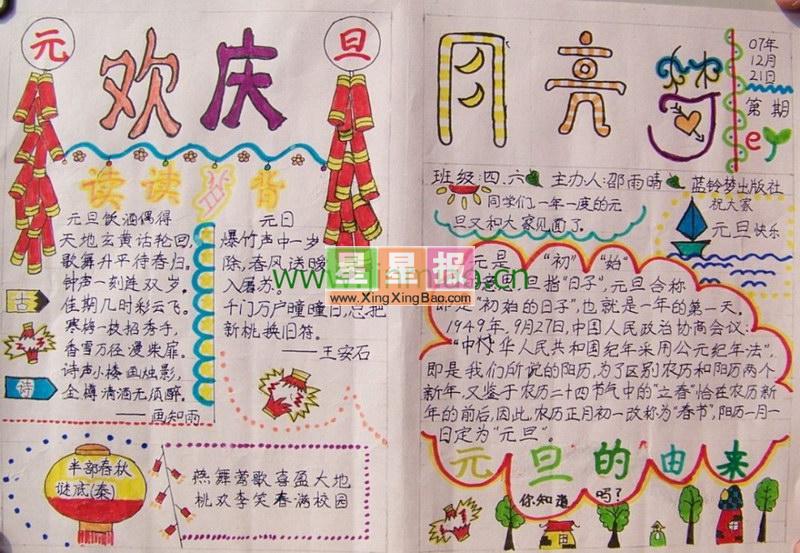 元 欢庆 旦
读读背背
元旦饮酒偶得
天地玄黄诂轮回,
歌舞升平待春归。
钟声一刻连双岁。
佳期几时彩云飞。
寒梅一枝招秀手,
香雪万径漫柴扉。
诗声小楼函烛影,
金樽清酒无须醉。
——画知雨
古
诗
元日
爆竹声中一岁
除,春风送暖
入屠苏。
千门万户曈曈日,总把
新桃换旧符。
——王安石
半部春秋
谜底(泰)
燕舞莺歌喜盈大地
桃欢李笑春满校园
月亮梦
07年
12月
21日
第 期
ey
班级:四.六 主办人:邵雨晴 蓝铃梦出版社
同学们一年一度的元
旦又和大家见面了。
祝大家
元旦快乐
元是 "初" "始"
旦指"日子",元旦合称
即是"初始的日子",也就是一年的第一天。
1949年,9月27日,中国人民政治协商会议:
"中华人民共和国纪年采用公元纪年法",
即是我们所说的阳历,为了区别农历和阳历两个
新年,又鉴于农历二十四节气中的"立春"恰在农历新
年的前后,因此,农历正月初一改称为"春节",阳历一月一
日定为"元旦"。
元旦的由来
你知道 吗?
星星报
www.XingXingBao.com